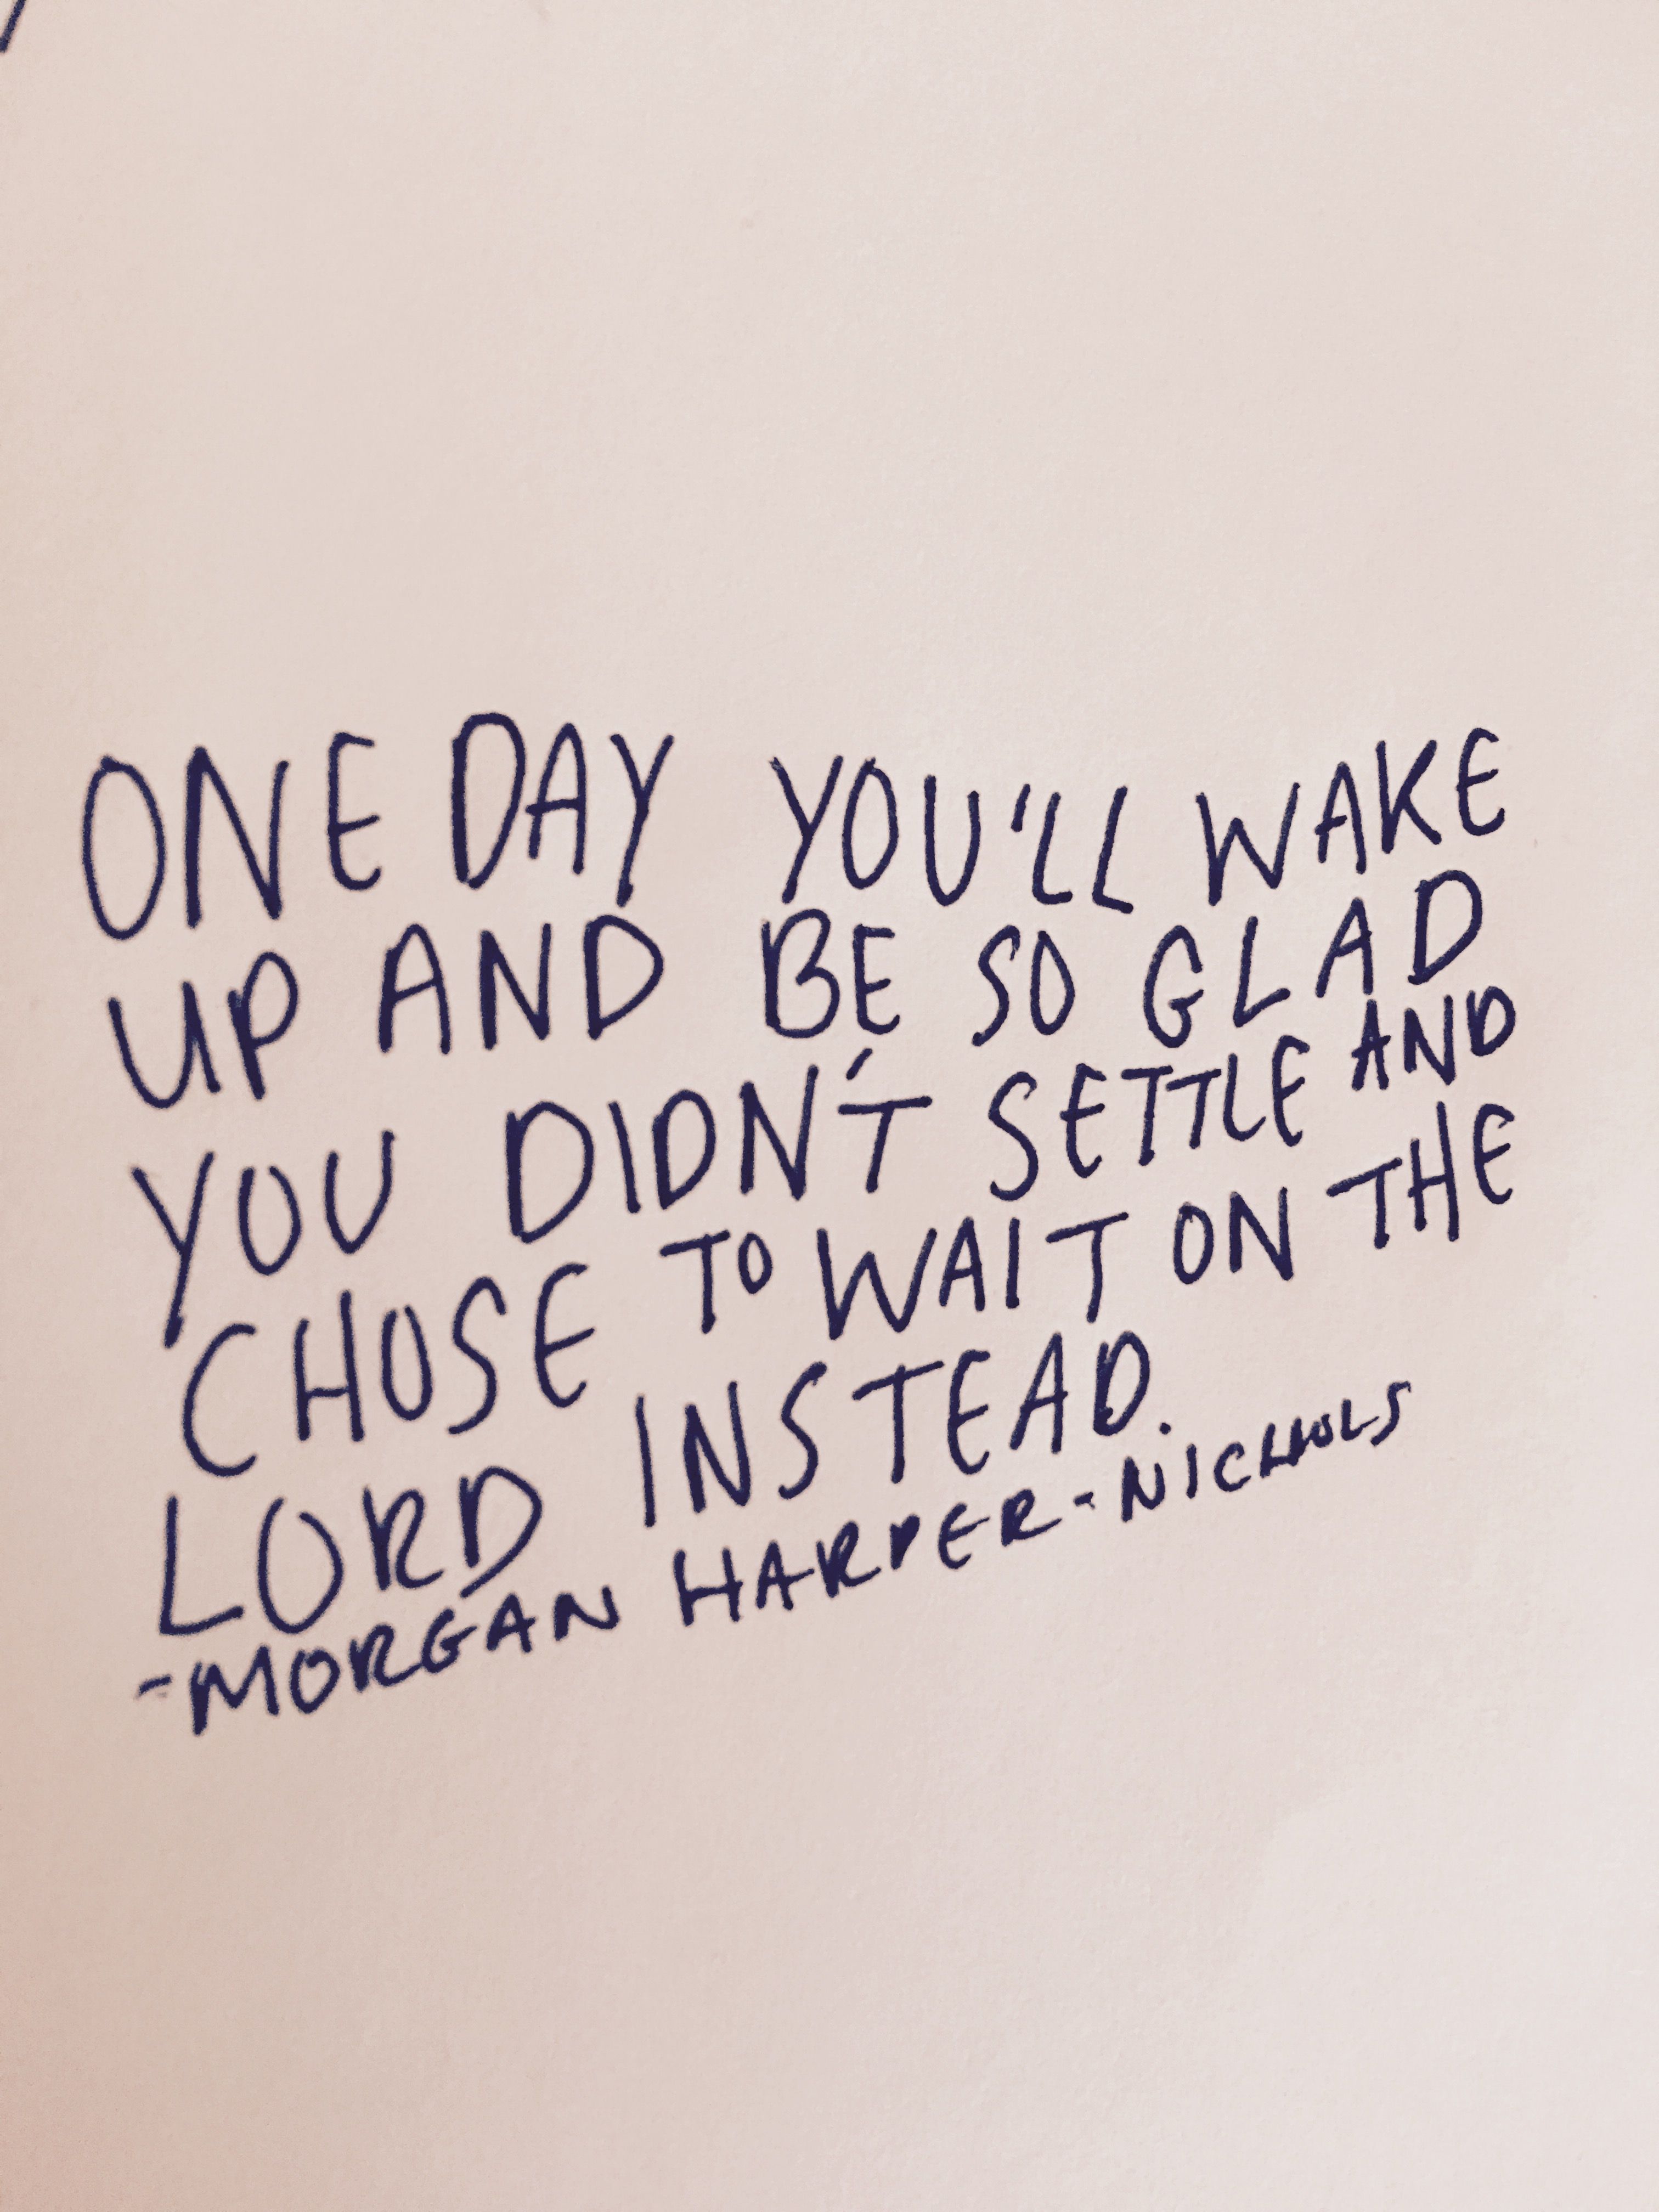 ONE DAY YOU'LL WAKE
UP AND BE SO GLAD
YOU DIDN'T SETTLE AND
CHOSE TO WAIT ON THE
LORD INSTEAD.
-MORGAN HARPER-NICHOLS